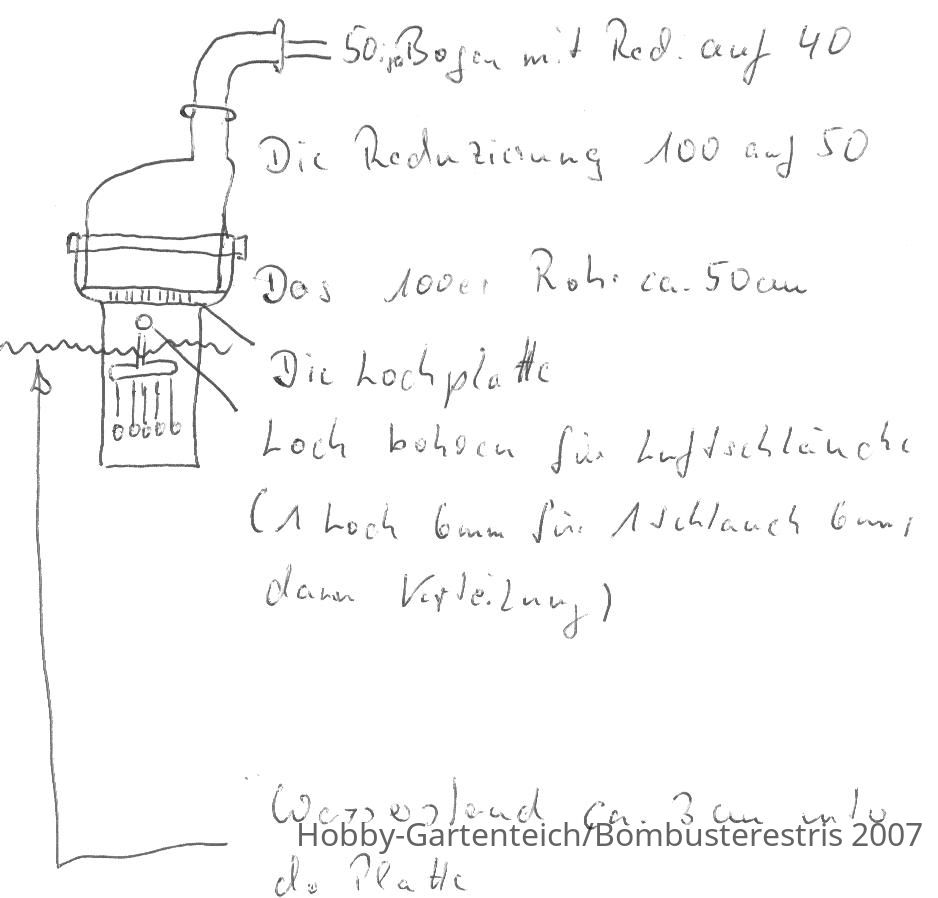 50iger Bogen mit Red. auf 40
Die Reduzierung 100 auf 50
Das 100er Rohr ca. 50cm
Die Lochplatte
Loch bohren für Luftschläuche
(1 Loch 6mm für 1 Schlauch 6mm,
dann Verteilung)
Wasserstand ca. 3 cm unter
Hobby-Gartenteich/Bombusterestris 2007
die Platte